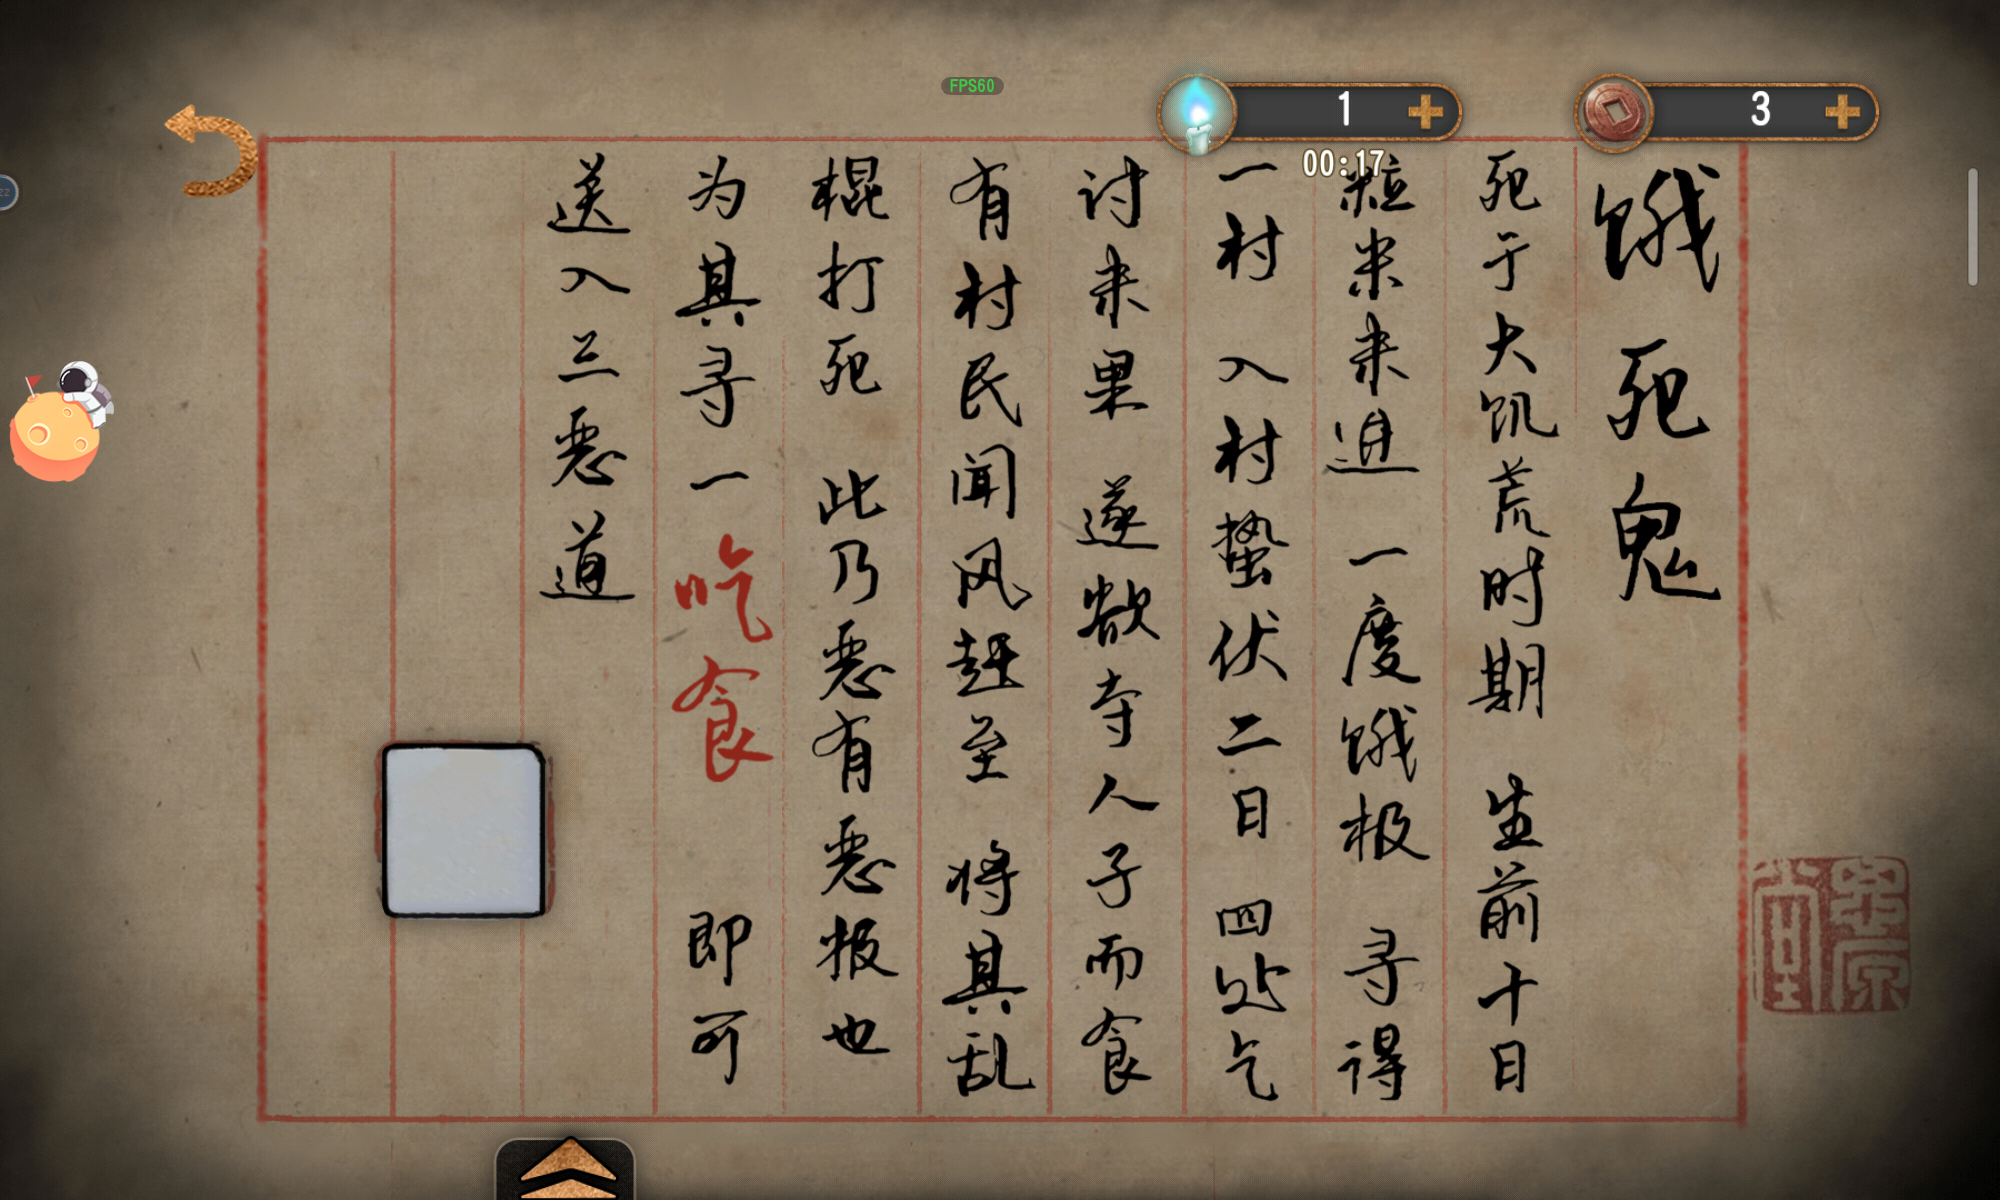 FPS60
1
3
00:17
饿死鬼
死于大饥荒时期 生前十日
粒米未进 一度饿极 寻得
一村 入村蛰伏二日 四处乞
讨未果 遂欲寺人子而食
有村民闻风赶至 将其乱
棍打死 此乃恶有恶报也
为其寻一吃食 即可
送入三恶道